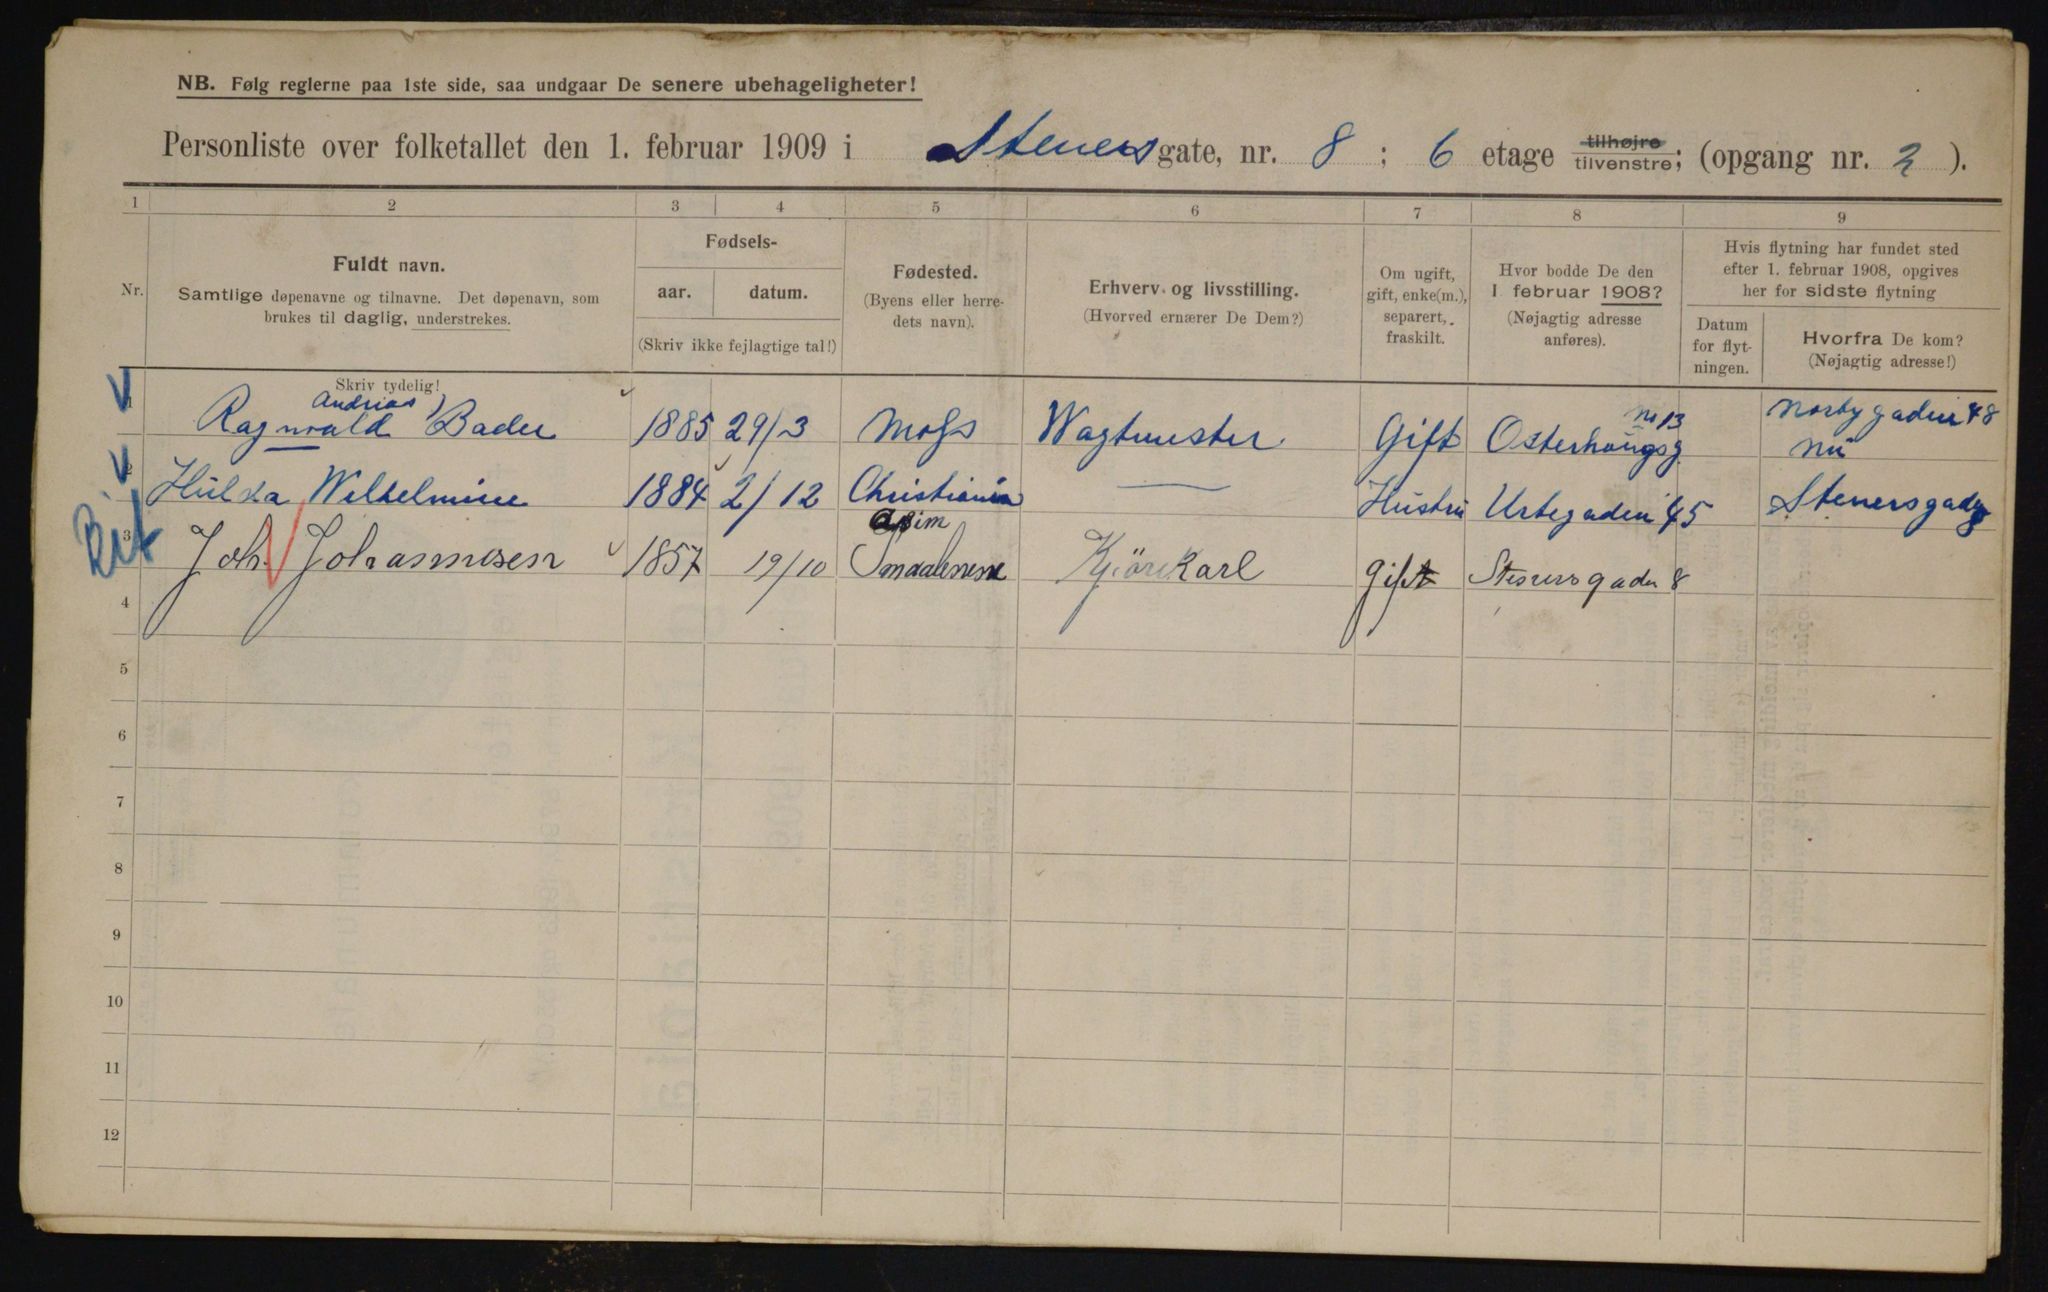 NB. Følg reglerne paa 1ste side, saa undgaar De senere ubehageligheter!
Personliste over folketallet den 1. februar 1909 i Stenersgate, nr. 8 ; 6 etage tilhøjre tilvenstre; (opgang nr. 2 ).
1 2 3 4 5 6 7 8 9
Nr.
Fuldt navn.
Samtlige døpenavne og tilnavne. Det døpenavn, som
brukes til daglig, understrekes.
Fødsels-
aar. datum.
(Skriv ikke fejlagtige tal!)
Fødested.
(Byens eller herre-
dets navn).
Erhverv og livsstilling.
(Hvorved ernærer De Dem?)
Om ugift,
gift, enke(m.),
separert,
fraskilt.
Hvor bodde De den
1 februar 1908?
(Nøjagtig adresse
anføres).
Hvis flytning har fundet sted
efter 1. februar 1908, opgives
her for sidste flytning
Datum
for flyt-
ningen.
Hvorfra De kom?
(Nøjagtig adresse!)
Skriv tydelig!
Andrias
1 Ragnvald Bader 1885 29/3 Moss Wagtmester Gift Osterhaugsg no 13 Norbygaden 48
nu
2 Hulda Wilhelmine 1884 2/12 Christiania — Hustru Urtegaden 45 Stenersgade
Asim
3 Joh. Johannesen 1857 19/10 Smaalenene Kjörekarl Gift Stenersgaden 8
4
5
6
7
8
9
10
11
12